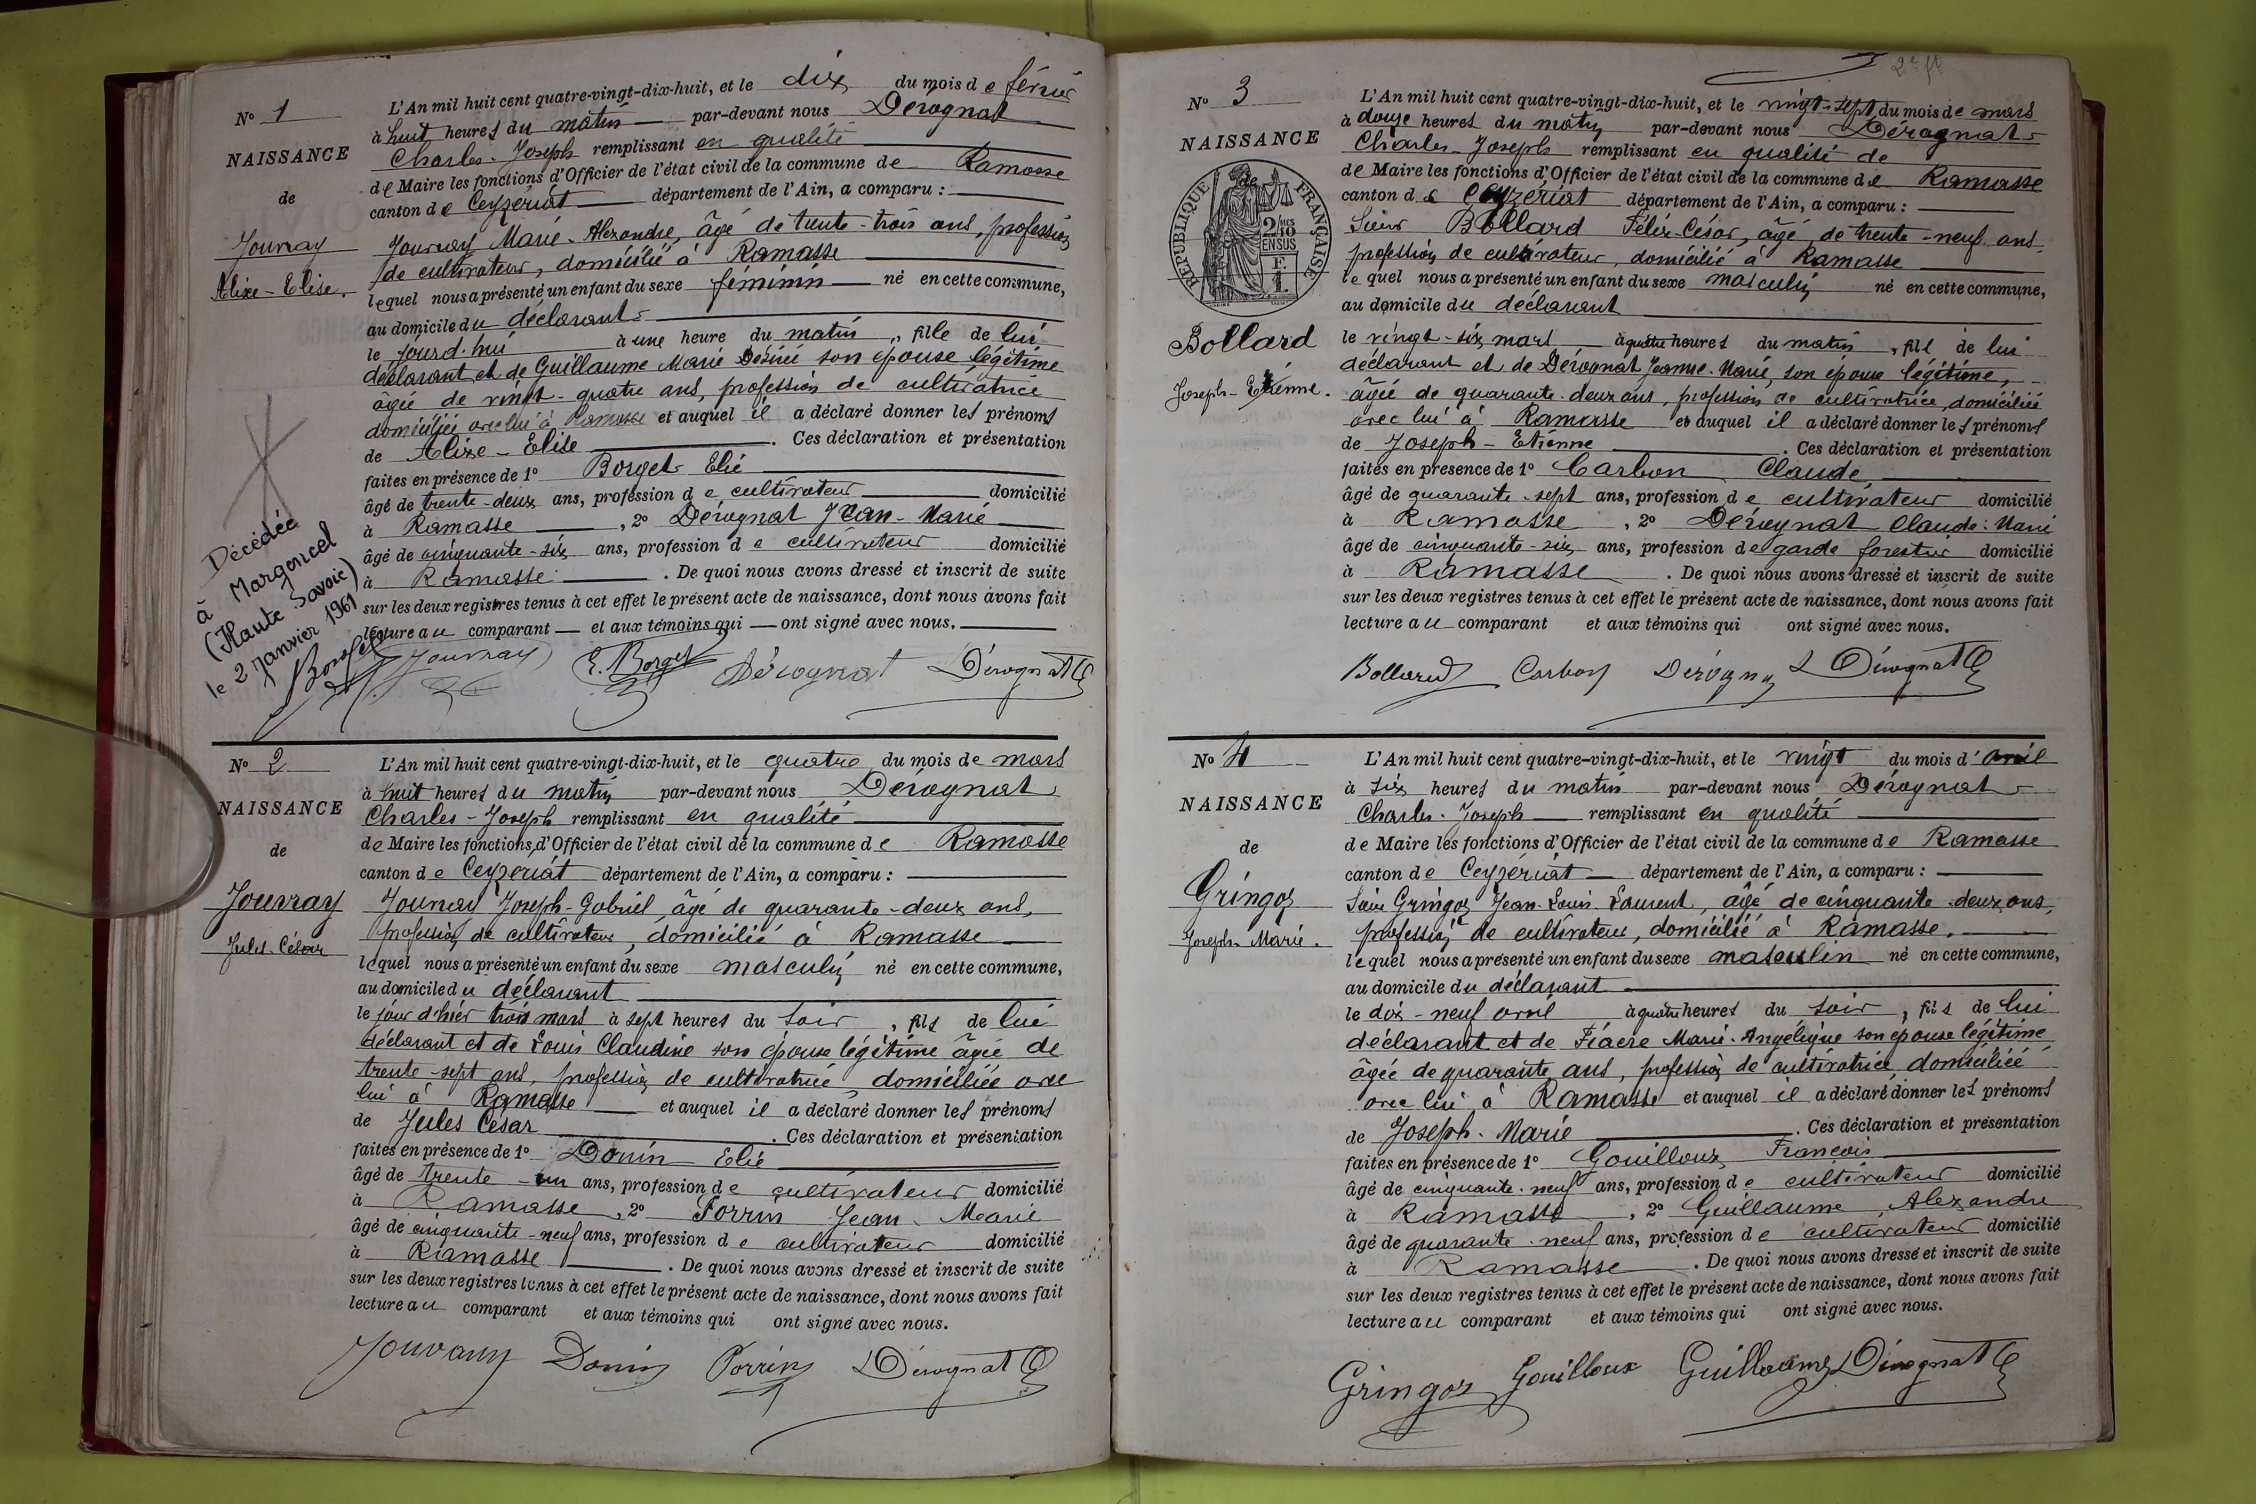 N° 1
NAISSANCE
de
Jouvray
Alixe-Elise.
L'An mil huit cent quatre-vingt-dix-huit, et le dix du mois de février
à huit heures du matin par-devant nous Dérognat
Charles-Joseph remplissant en qualité
de Maire les fonctions d'Officier de l'état civil de la commune de Ramasse
canton de Ceyzériat département de l'Ain, a comparu :
Jouvray Marie-Alexandre, âgé de trente-trois ans, profession
de cultivateur, domicilié à Ramasse
lequel nous a présenté un enfant du sexe féminin né en cette commune,
au domicile du déclarant
le jourd'hui à une heure du matin, fille de lui
déclarant et de Guillaume Marie Désirée son épouse légitime
âgée de vingt-quatre ans, profession de cultivatrice
domiciliée avec lui à Ramasse et auquel il a déclaré donner les prénoms
de Alixe-Elise. Ces déclaration et présentation
faites en présence de 1° Borget Elie
âgé de trente-deux ans, profession de cultivateur domicilié
à Ramasse, 2° Dérognat Jean-Marie
âgé de cinquante-six ans, profession de cultivateur domicilié
à Ramasse. De quoi nous avons dressé et inscrit de suite
sur les deux registres tenus à cet effet le présent acte de naissance, dont nous avons fait
lecture au comparant et aux témoins qui ont signé avec nous.
Jouvray E. Borget Dérognat Dérognat
Décédée
à Margencel
(Haute Savoie)
le 2 Janvier 1961
N° 2
NAISSANCE
de
Jouvray
Jules-César
L'An mil huit cent quatre-vingt-dix-huit, et le quatre du mois de mars
à huit heures du matin par-devant nous Dérognat
Charles-Joseph remplissant en qualité
de Maire les fonctions d'Officier de l'état civil de la commune de Ramasse
canton de Ceyzériat département de l'Ain, a comparu :
Jouvray Joseph-Gabriel, âgé de quarante-deux ans,
profession de cultivateur, domicilié à Ramasse
lequel nous a présenté un enfant du sexe masculin né en cette commune,
au domicile du déclarant
le jour d'hier trois mars à sept heures du soir, fils de lui
déclarant et de Louis Claudine son épouse légitime âgée de
trente-sept ans, profession de cultivatrice domiciliée avec
lui à Ramasse et auquel il a déclaré donner les prénoms
de Jules César. Ces déclaration et présentation
faites en présence de 1° Donin Elie
âgé de trente-un ans, profession de cultivateur domicilié
à Ramasse, 2° Porrin Jean-Marie
âgé de cinquante-neuf ans, profession de cultivateur domicilié
à Ramasse. De quoi nous avons dressé et inscrit de suite
sur les deux registres tenus à cet effet le présent acte de naissance, dont nous avons fait
lecture au comparant et aux témoins qui ont signé avec nous.
Jouvray Donin Porrin Dérognat
2e ft
N° 3
NAISSANCE
de
RÉPUBLIQUE FRANÇAISE
2/10
EN SUS
Bollard
Joseph-Etienne.
L'An mil huit cent quatre-vingt-dix-huit, et le vingt-sept du mois de mars
à douze heures du matin par-devant nous Dérognat
Charles-Joseph remplissant en qualité de
de Maire les fonctions d'Officier de l'état civil de la commune de Ramasse
canton de Ceyzériat département de l'Ain, a comparu :
Sieur Bollard Félix-César, âgé de trente-neuf ans
profession de cultivateur, domicilié à Ramasse
lequel nous a présenté un enfant du sexe masculin né en cette commune,
au domicile du déclarant
le vingt-six mars à quatre heures du matin, fils de lui
déclarant et de Dérognat Jeanne-Marie, son épouse légitime,
âgée de quarante-deux ans, profession de cultivatrice, domiciliée
avec lui à Ramasse et auquel il a déclaré donner les prénoms
de Joseph-Etienne. Ces déclaration et présentation
faites en présence de 1° Carbon Claude
âgé de quarante-sept ans, profession de cultivateur domicilié
à Ramasse, 2° Dérognat Claude-Marie
âgé de cinquante-six ans, profession de garde forestier domicilié
à Ramasse. De quoi nous avons dressé et inscrit de suite
sur les deux registres tenus à cet effet le présent acte de naissance, dont nous avons fait
lecture au comparant et aux témoins qui ont signé avec nous.
Bollard Carbon Dérognat Dérognat
N° 4
NAISSANCE
de
Gringoz
Joseph-Marie.
L'An mil huit cent quatre-vingt-dix-huit, et le vingt du mois d'avril
à six heures du matin par-devant nous Dérognat
Charles-Joseph remplissant en qualité
de Maire les fonctions d'Officier de l'état civil de la commune de Ramasse
canton de Ceyzériat département de l'Ain, a comparu :
Sieur Gringoz Jean-Louis-Laurent, âgé de cinquante-deux ans,
profession de cultivateur, domicilié à Ramasse.
lequel nous a présenté un enfant du sexe masculin né en cette commune,
au domicile du déclarant
le dix-neuf avril à quatre heures du soir, fils de lui
déclarant et de Fiacre Marie-Angélique son épouse légitime
âgée de quarante ans, profession de cultivatrice, domiciliée
avec lui à Ramasse et auquel il a déclaré donner les prénoms
de Joseph-Marie. Ces déclaration et présentation
faites en présence de 1° Gouilloux François
âgé de cinquante-neuf ans, profession de cultivateur domicilié
à Ramasse, 2° Guillaume Alexandre
âgé de quarante-neuf ans, profession de cultivateur domicilié
à Ramasse. De quoi nous avons dressé et inscrit de suite
sur les deux registres tenus à cet effet le présent acte de naissance, dont nous avons fait
lecture au comparant et aux témoins qui ont signé avec nous.
Gringoz Gouilloux Guillaume Dérognat